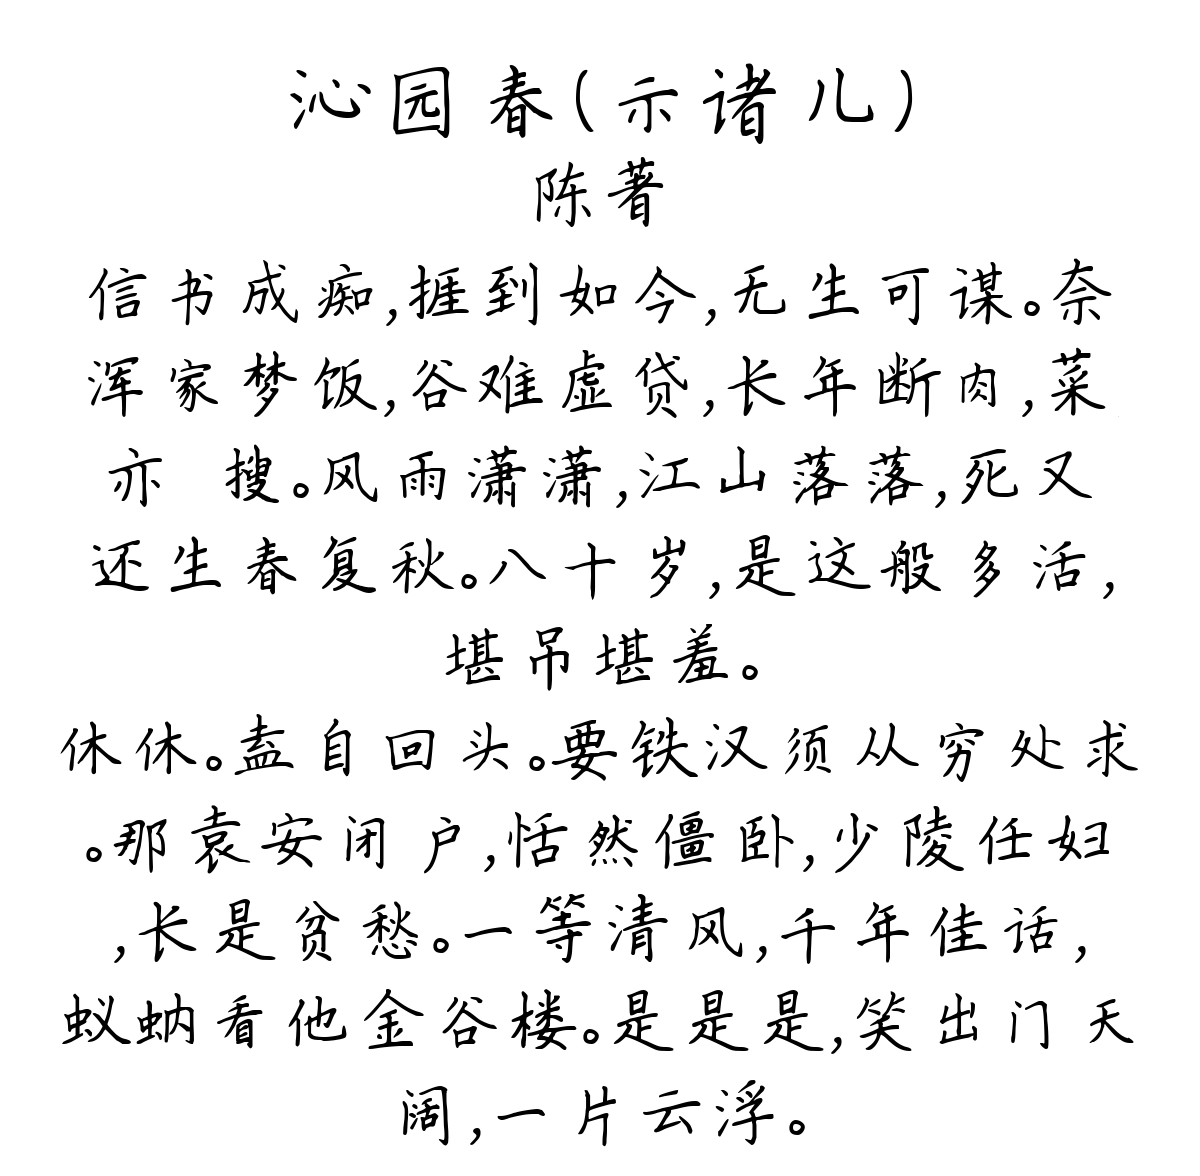 沁园春(示诸儿)
陈著
信书成痴,捱到如今,无生可谋。奈
浑家梦饭,谷难虚贷,长年断肉,菜
亦 搜。风雨潇潇,江山落落,死又
还生春复秋。八十岁,是这般多活,
堪吊堪羞。
休休。盍自回头。要铁汉须从穷处求
。那袁安闭户,恬然僵卧,少陵任妇
,长是贫愁。一等清风,千年佳话,
蚁蚋看他金谷楼。是是是,笑出门天
阔,一片云浮。